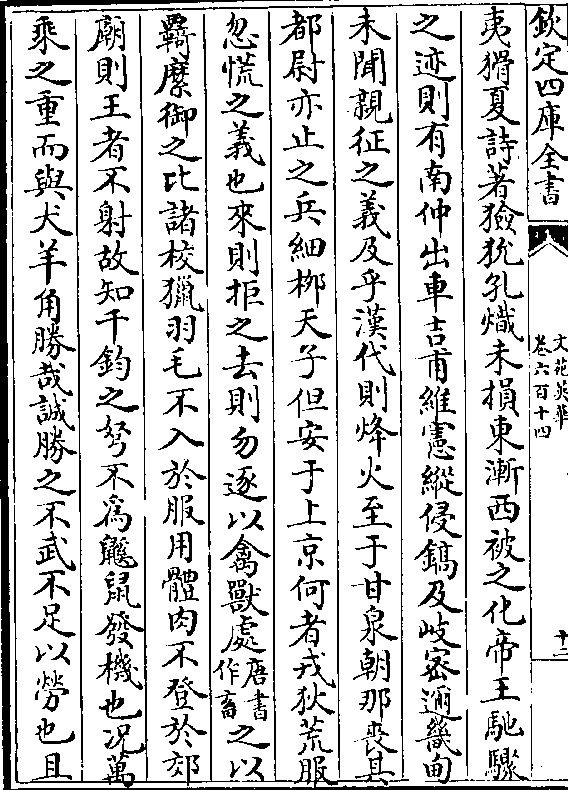 欽定四庫全書
文苑英華
卷六百十四
十二
夷猾夏詩著獫狁孔熾未損東漸西被之化帝王馳驟
之迹則有南仲出車吉甫維憲縱侵鎬及岐密邇畿甸
未聞親征之義及乎漢代則烽火至于甘泉朝那喪其
都尉亦止之兵細柳天子但安于上京何者戎狄荒服
忽慌之義也來則拒之去則勿逐以禽獸處唐書作畜之以
羇縻御之比諸校獵羽毛不入於服用體肉不登於郊
廟則王者不射故知千鈞之弩不為鼷鼠發機也况萬
乘之重而與犬羊角勝哉誠勝之不武不足以勞也且